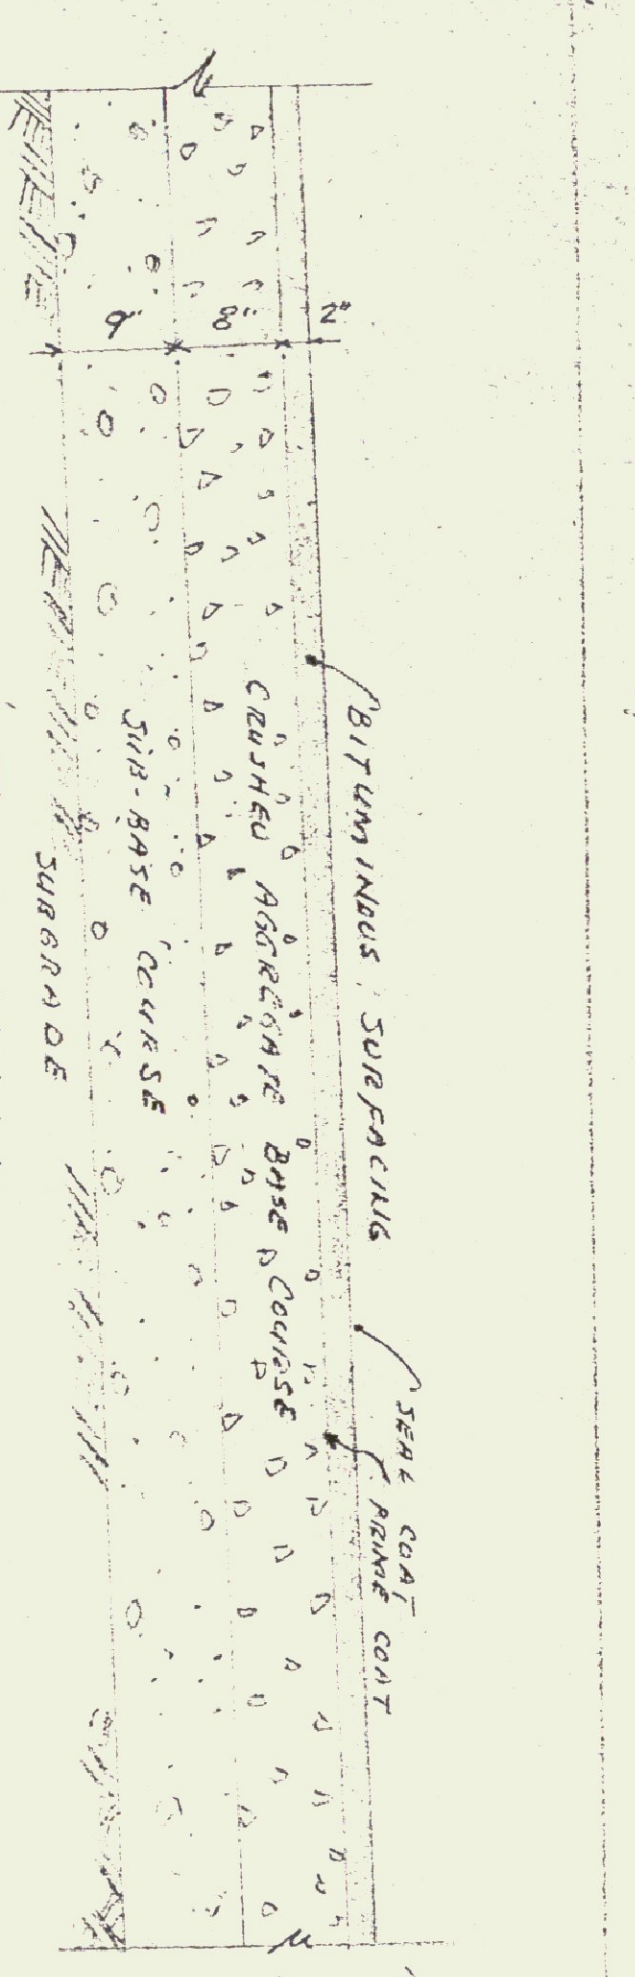 SEAL COAT
PRIME COAT
BITUMINOUS SURFACING
2"
8"
9"
CRUSHED AGGREGATE BASE COURSE
SUB-BASE COURSE
SUBGRADE